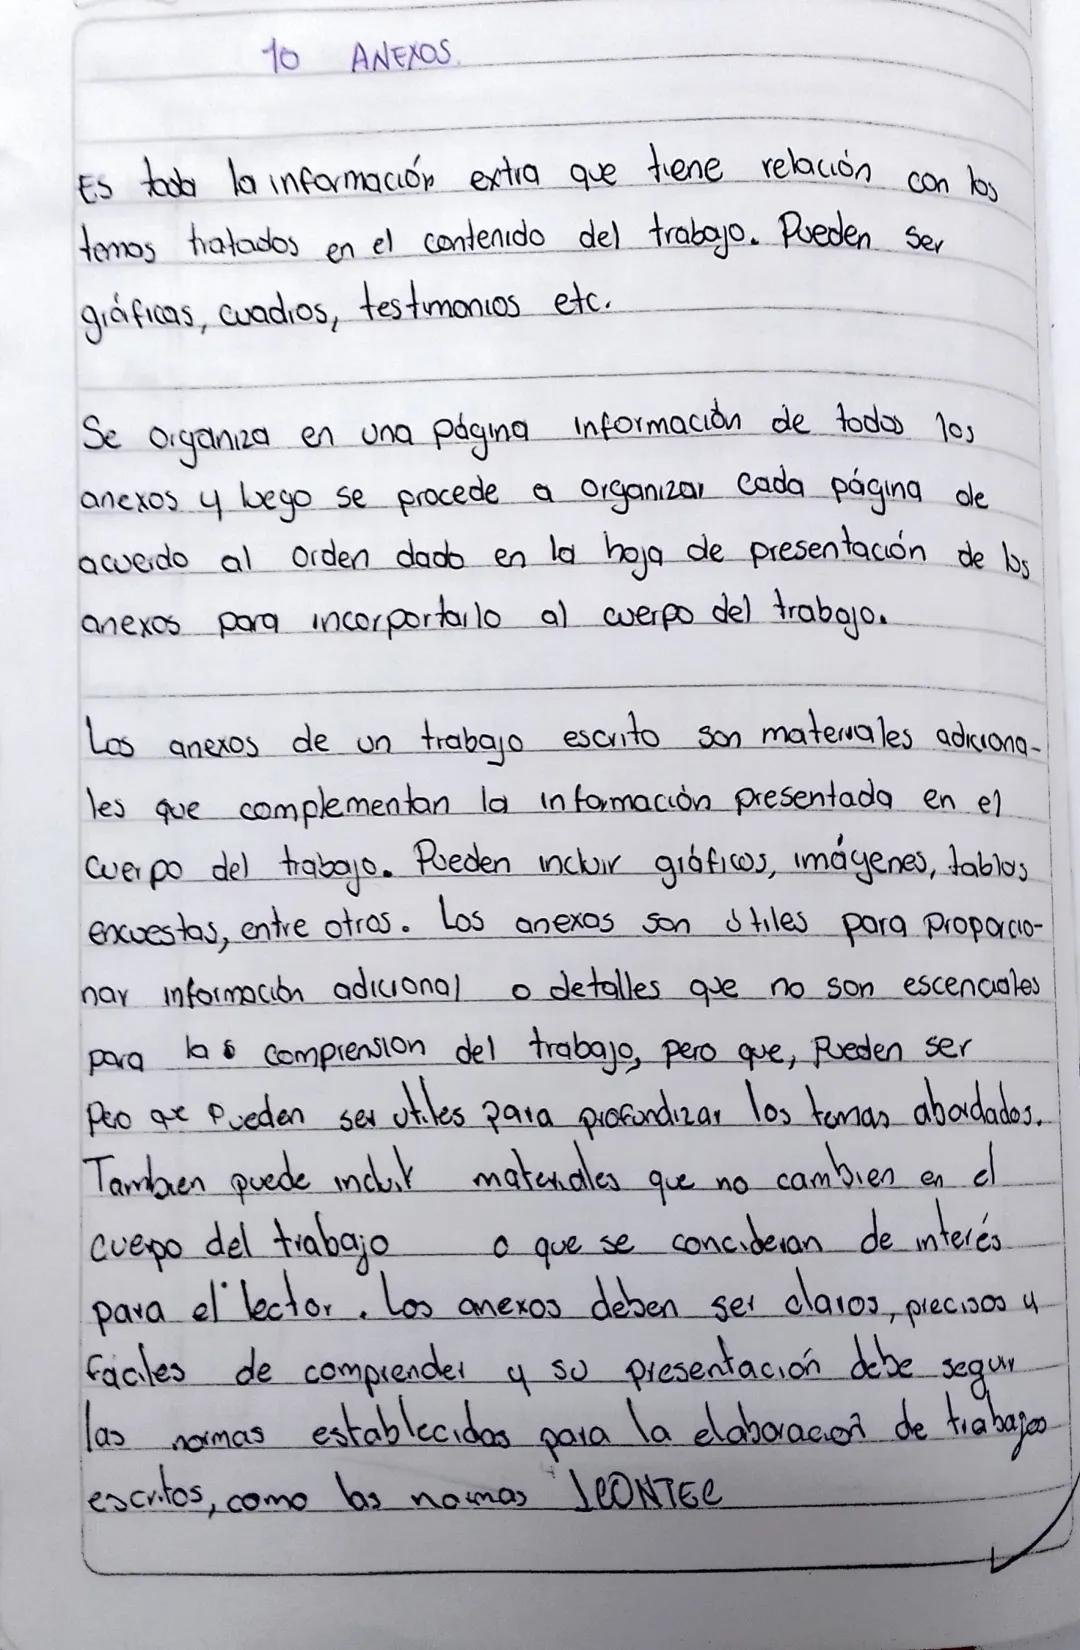 10 ANEXOS.
Es toda la información extra que tiene relación con los
temas tratados en el contenido del trabajo. Pueden ser
gráficas, cuadros, testimonios etc.
Se organiza en una página información de todos los
anexos y luego se procede a organizar cada página de
acuerdo al orden dado en la hoja de presentación de los
anexos para incorportarlo al cuerpo del trabajo.
Los anexos de un trabajo escrito son materiales adiciona-
les que complementan la información presentada en el
cuerpo del trabajo. Pueden incluir gráficos, imágenes, tablas
encuestas, entre otros. Los anexos son útiles para proporcio-
nar información adicional o detalles que no son escenciales
para la comprension del trabajo, pero que, pueden ser
pero que pueden ser utiles para profundizar los temas abordados.
Tambien puede incluir materiales que no cambien en el
cuerpo del trabajo o que se concideran de interés
para el lector. Los anexos deben ser claros, precisos y
fáciles de comprender y su presentación debe seguir
las normas establecidas para la elaboración de trabajos
escritos, como las normas ICONTEC